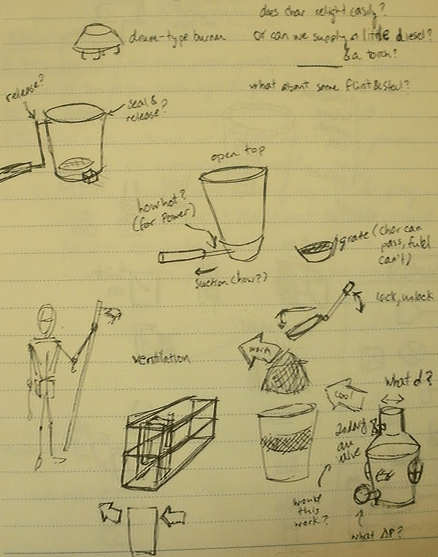 does char relight easily?
drum-type burner
or can we supply a little diesel?
& a torch?
what about some flint & steel?
release?
seal &
release?
open top
how hot?
(for power)
grate (char can
pass, fuel
can't)
suction (how?)
lock, unlock
ventilation
COOL
what d?
would
this
work?
what ΔP?